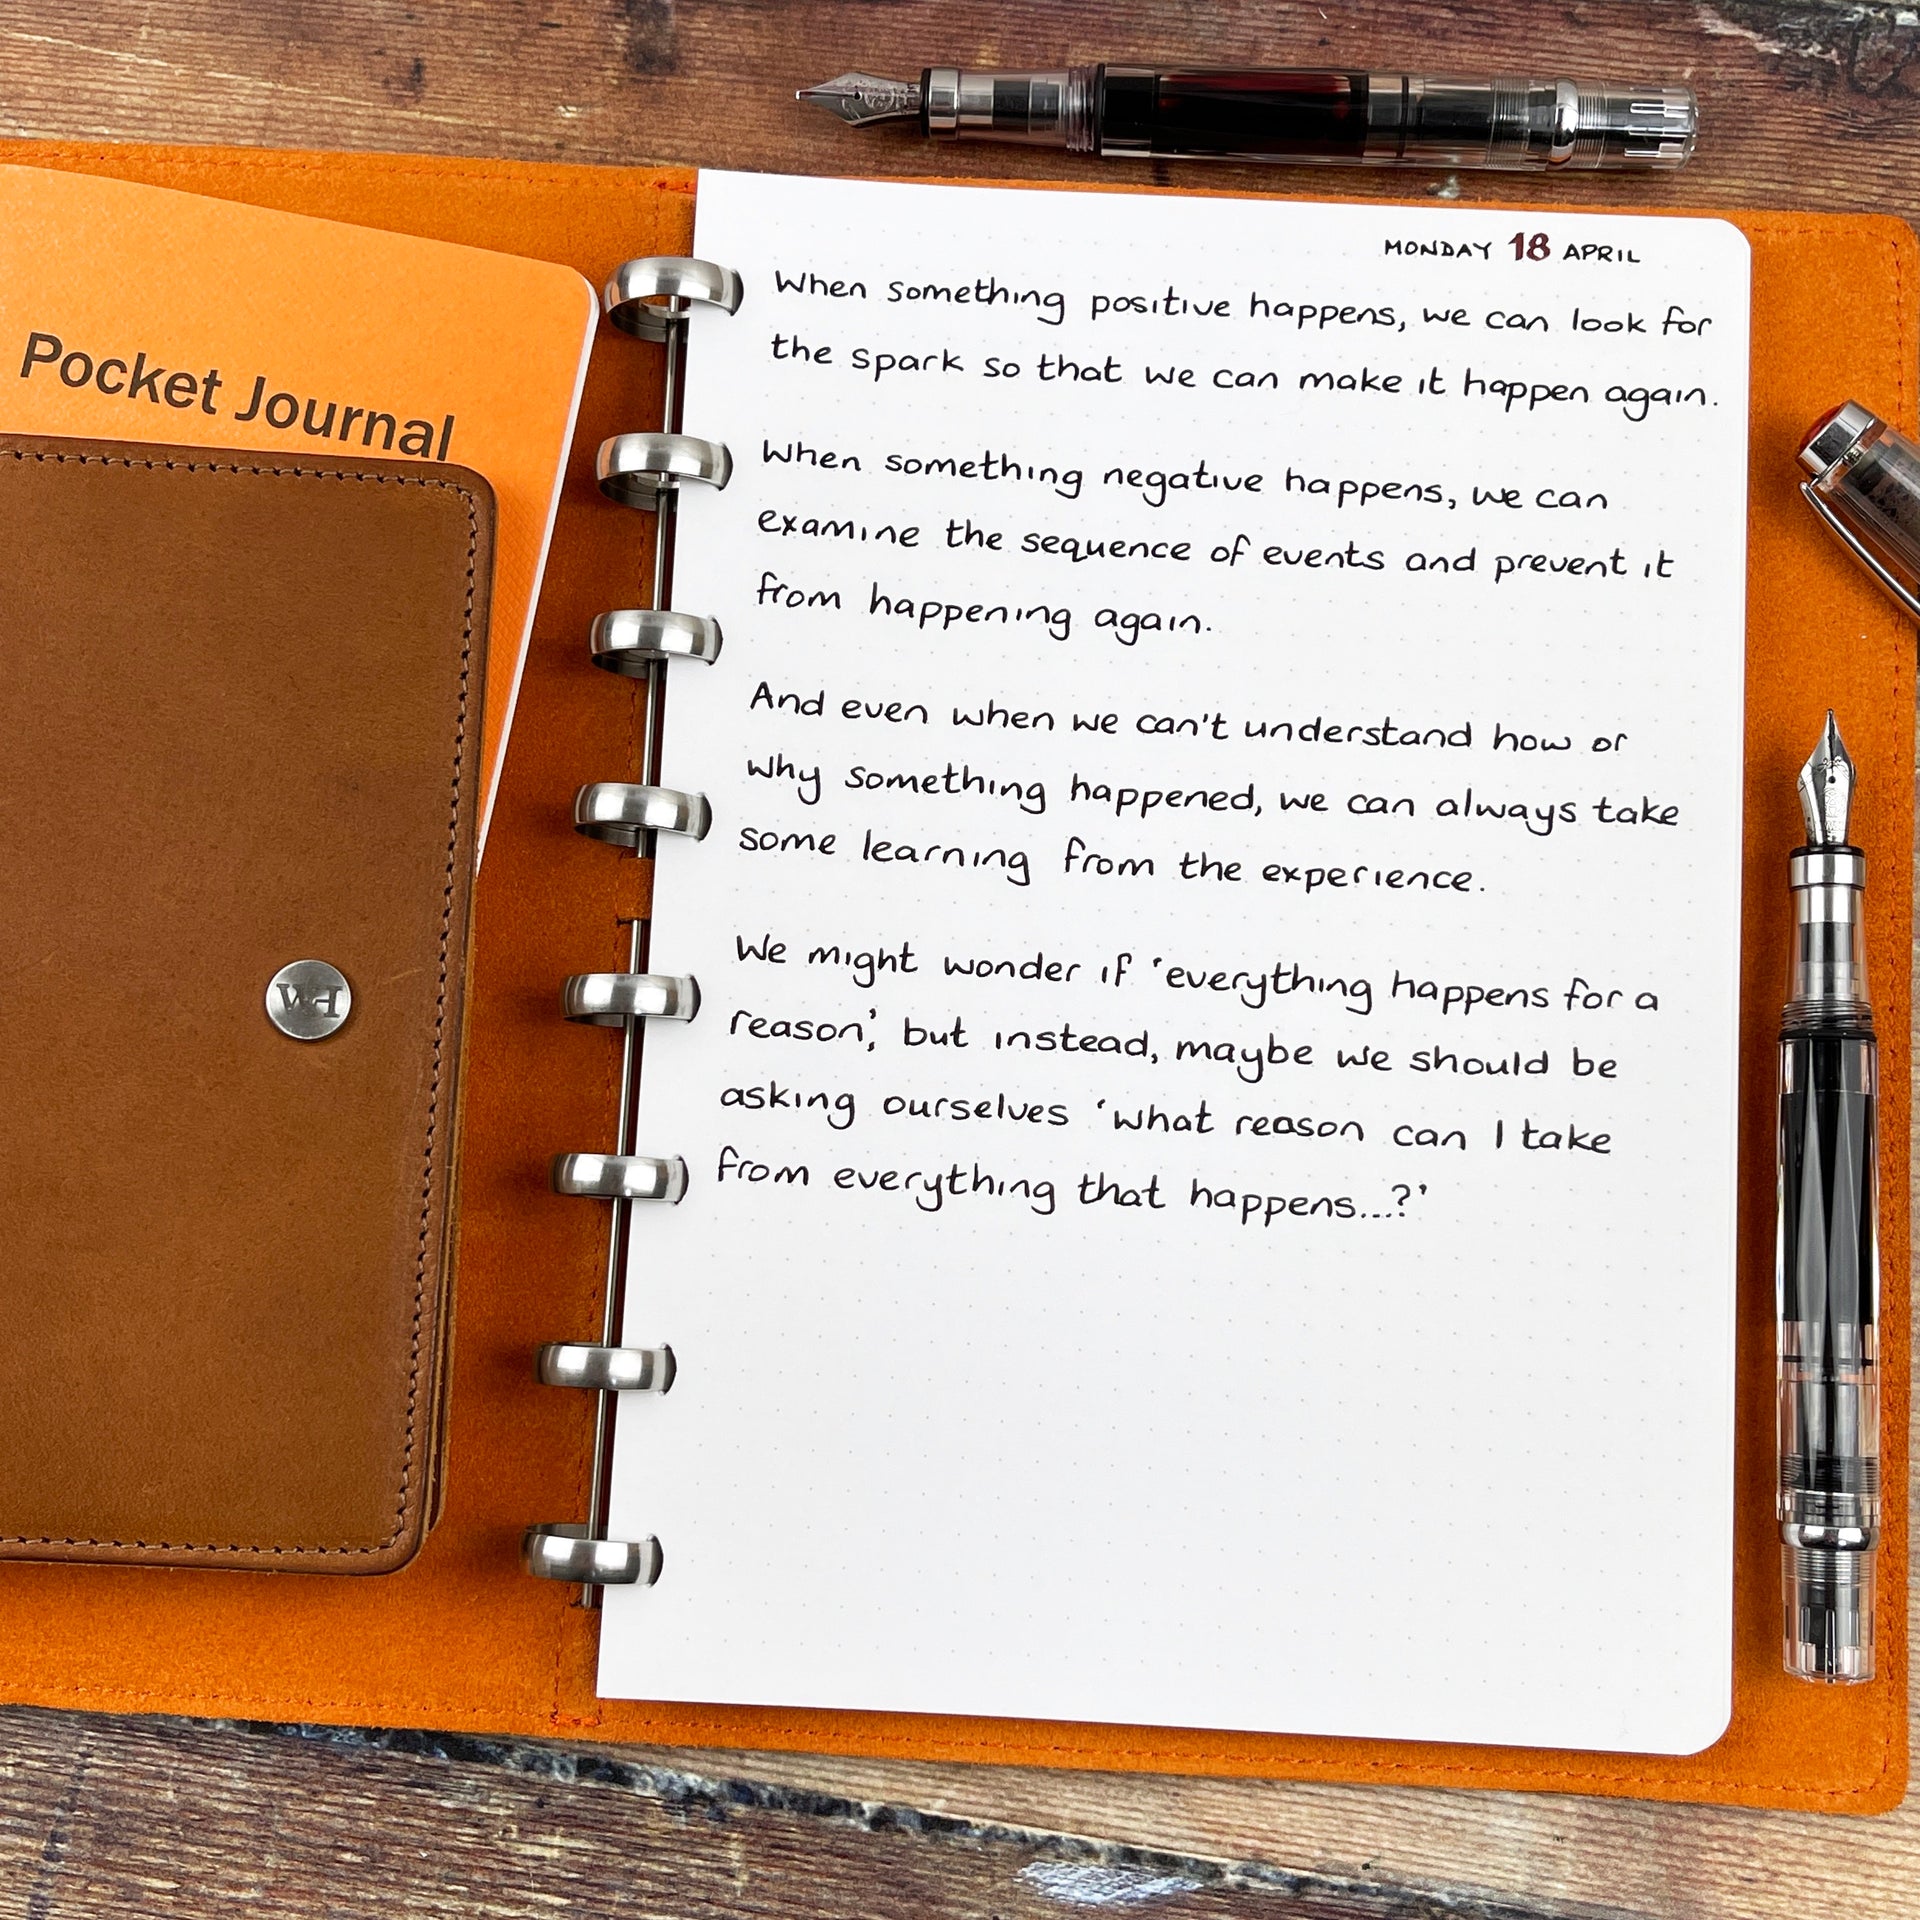 Pocket Journal
WH
MONDAY 18 APRIL
When something positive happens, we can look for
the spark so that we can make it happen again.
When something negative happens, we can
examine the sequence of events and prevent it
from happening again.
And even when we can't understand how or
why something happened, we can always take
some learning from the experience.
We might wonder if 'everything happens for a
reason', but instead, maybe we should be
asking ourselves 'what reason can I take
from everything that happens...?'